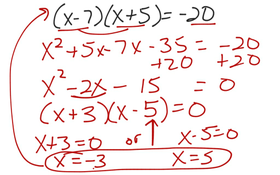 (x-7)(x+5)=-20
x²+5x-7x-35=-20
+20 +20
x²-2x-15=0
(x+3)(x-5)=0
x+3=0 or x-5=0
x=-3 x=5